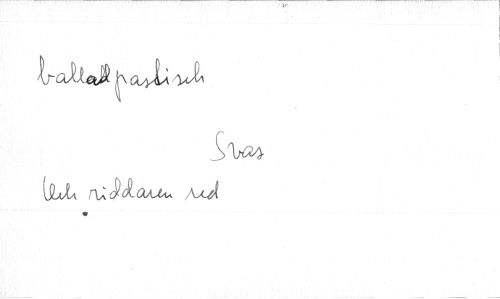 balladpastisch
Svas
Och riddaren red